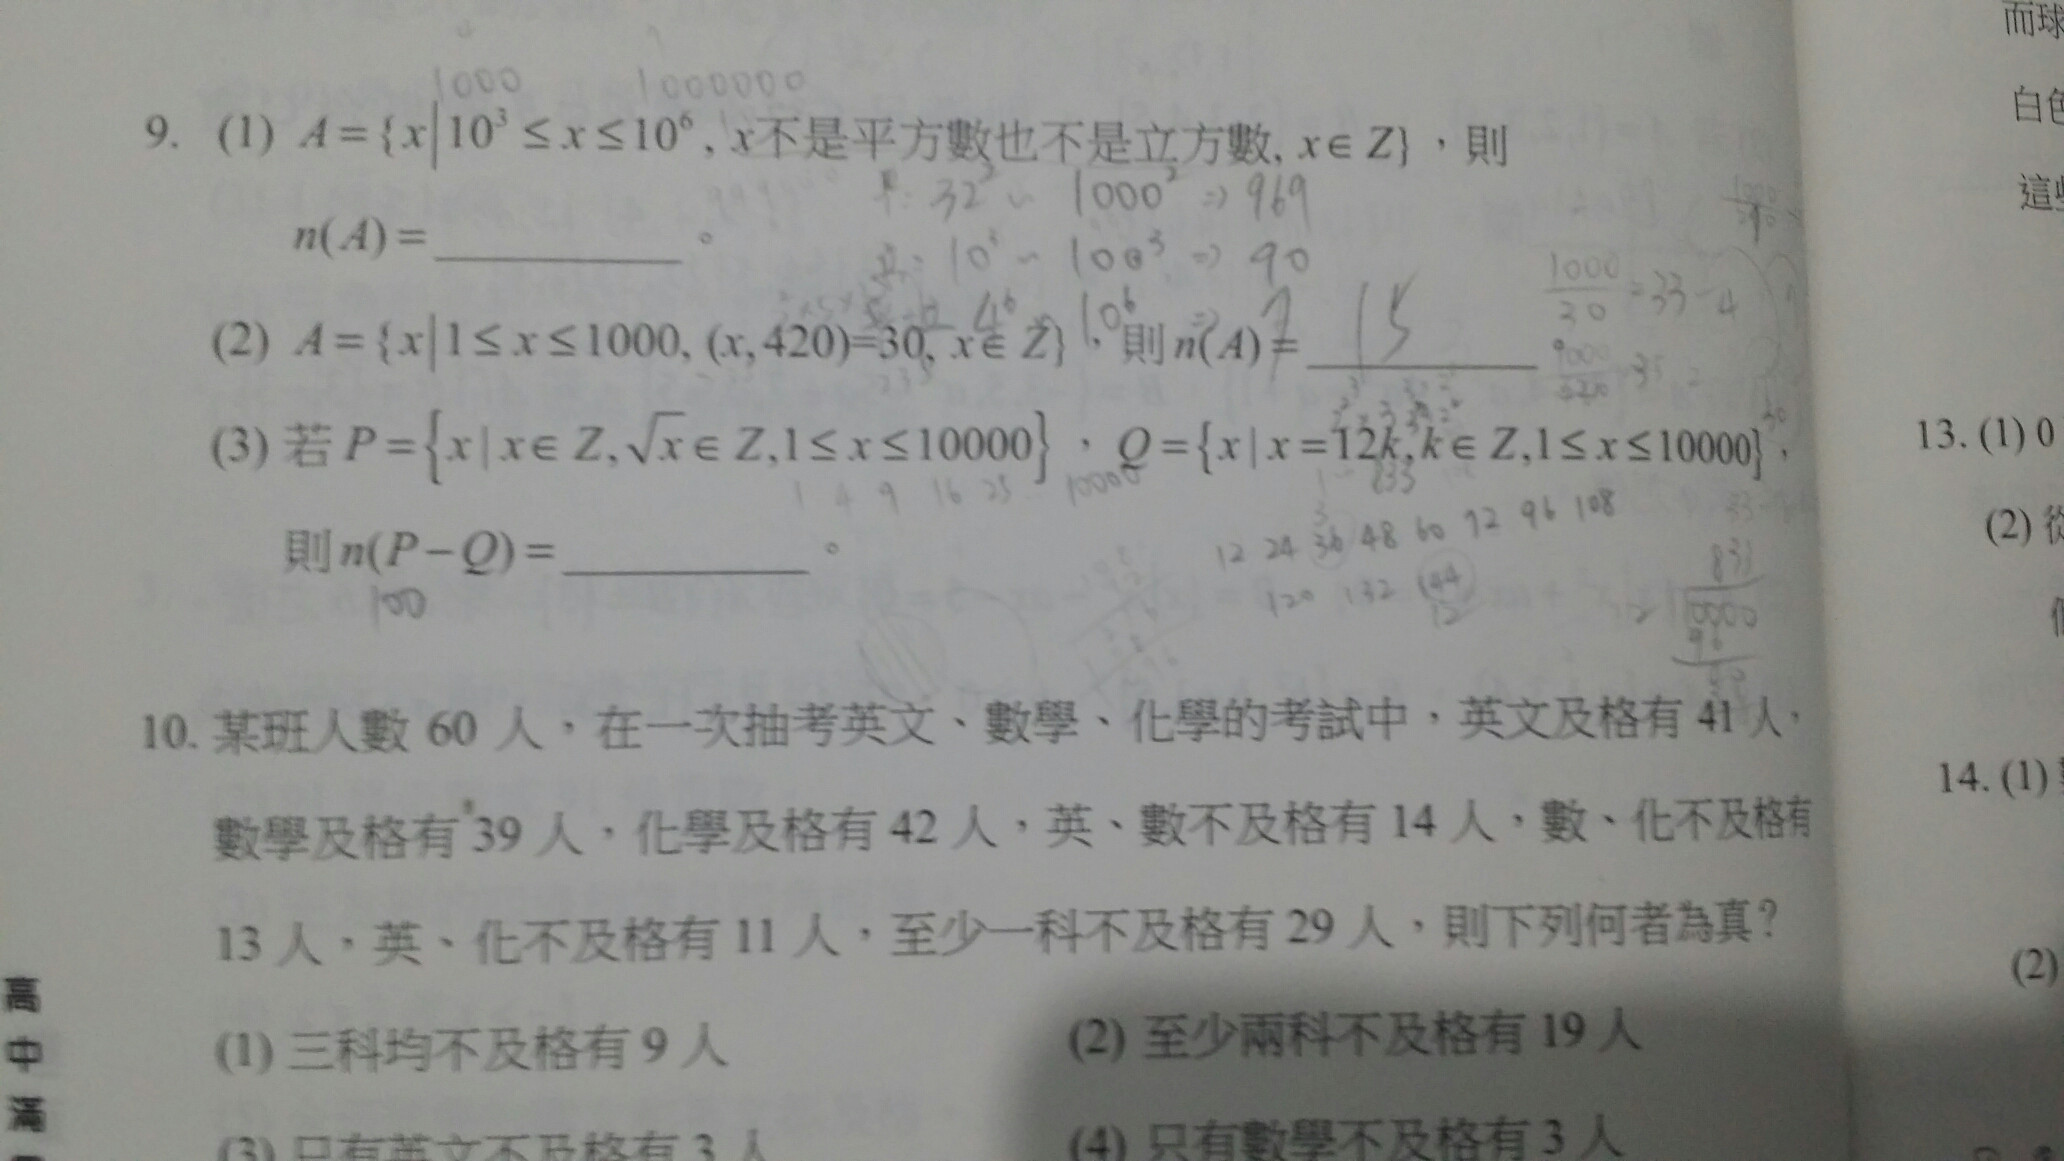 1000 1000000
9. (1) A={x|10³≤x≤10⁶, x不是平方數也不是立方數, x∈Z}，則
32² ~ 1000² ⇒ 969
n(A)=________。
10³ ~ 100³ ⇒ 90
1000/30 = 33 - 4
4⁶ ~ 10⁶ ⇒ 7
(2) A={x|1≤x≤1000, (x, 420)=30, x∈Z}，則n(A)=________
15
(3) 若P={x|x∈Z,√x∈Z,1≤x≤10000}，Q={x|x=12k,k∈Z,1≤x≤10000}，
1 4 9 16 25 10000
1 ~ 833
12 24 36 48 60 72 96 108
則n(P−Q)=________。
100
120 132 144
12
833
12 10000
96
10. 某班人數 60 人，在一次抽考英文、數學、化學的考試中，英文及格有 41 人，
數學及格有 39 人，化學及格有 42 人，英、數不及格有 14 人，數、化不及格有
13 人，英、化不及格有 11 人，至少一科不及格有 29 人，則下列何者為真？
(1) 三科均不及格有 9 人
(2) 至少兩科不及格有 19 人
(3) 只有英文不及格有 3 人
(4) 只有數學不及格有 3 人
高中滿
而球
白色
這些
13. (1) 0
(2) 從
14. (1)
(2)